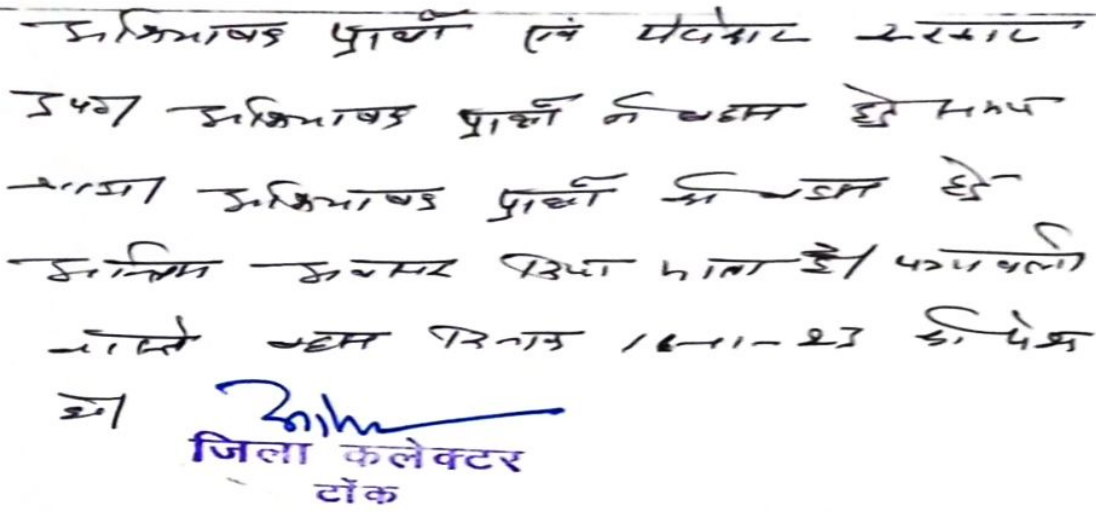 अभिभाषक प्रार्थी एवं पेरोकार सरकार
उप0 अभिभाषक प्रार्थी ने बहस हेतु समय
चाहा। अभिभाषक प्रार्थी को बहस हेतु
अन्तिम अवसर दिया जाता है। पत्रावली
वास्ते बहस दिनांक को पेश
हो।
जिला कलेक्टर
टोंक